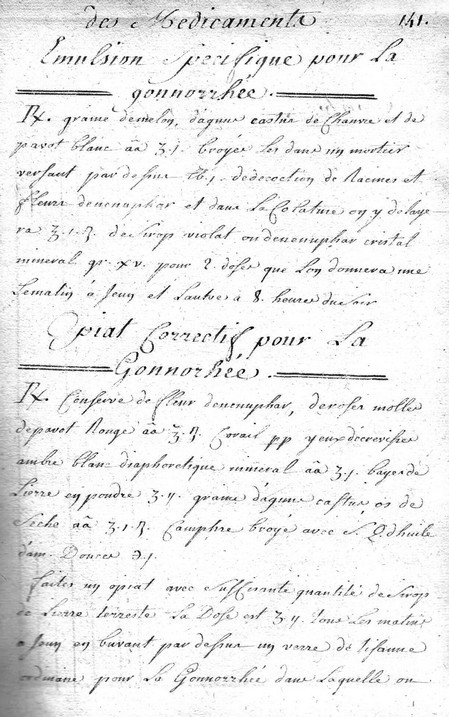 des Medicaments 141.
Emulsion Specifique pour La
gonnorrhée.
℞. graine demelon, d'agnus castus de Chanvre et de
pavot blanc āā ʒ.j. broyés les dans un mortier
versant par dessus ℔.j. dedecoction de Racines et
fleurs denenuphar et dans La Colature on y delaye
ra ʒ.j.ß. de Sirop violat ou denenuphar cristal
mineral gr. xv. pour 2 doses que Lon donnera une
Lematin à Jeun et Lautre à 8. heures du Soir
Opiat Correctif pour La
Gonnorhée.
℞. Conserve de fleur denenuphar, de roses molle
depavot Rouge āā ℥.ß. Corail pp yeux decrevisse
ambre blanc diaphoretique mineral āā ʒ.j. bayes de
Lierre en poudre ʒ.ij. graine d'agnus castus os de
Seche āā ʒ.j.ß. Camphre broyé avec S.Q. dhuile
dam. Douces ℈.j.
faites un opiat avec Suffisante quantité de Sirop
de Lierre terreste La Dose est ʒ.ij. tous Les matins
a Jeun en buvant par dessus un verre de tisanne
ordinaire pour La Gonnorrhée dans Laquelle on